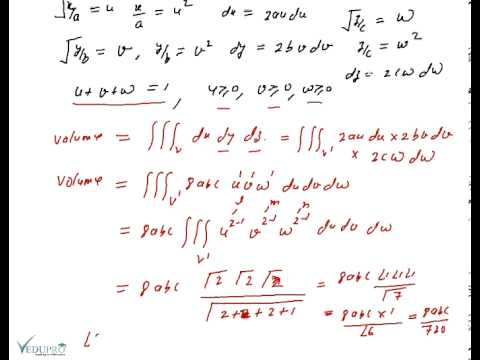 √x/a = u  x/a = u²  dx = 2au du  √z/c = w
√y/b = v, y/b = v²  dy = 2bv dv  z/c = w²
dz = 2cw dw
u+v+w = 1, u≥0, v≥0, w≥0
Volume = ∭_V dx dy dz = ∭_V' 2au du × 2bv dv
× 2cw dw
Volume = ∭_V' 8abc u' v' w' du dv dw
l m n
= 8abc ∭_V' u²⁻¹ v²⁻¹ w²⁻¹ du dv dw
= 8abc Γ2 Γ2 Γ2 / Γ2+2+2+1 = 8abc ∟1 ∟1 ∟1 / Γ7
= 8abc × 1 / ∟6 = 8abc / 720
VEDUPRO